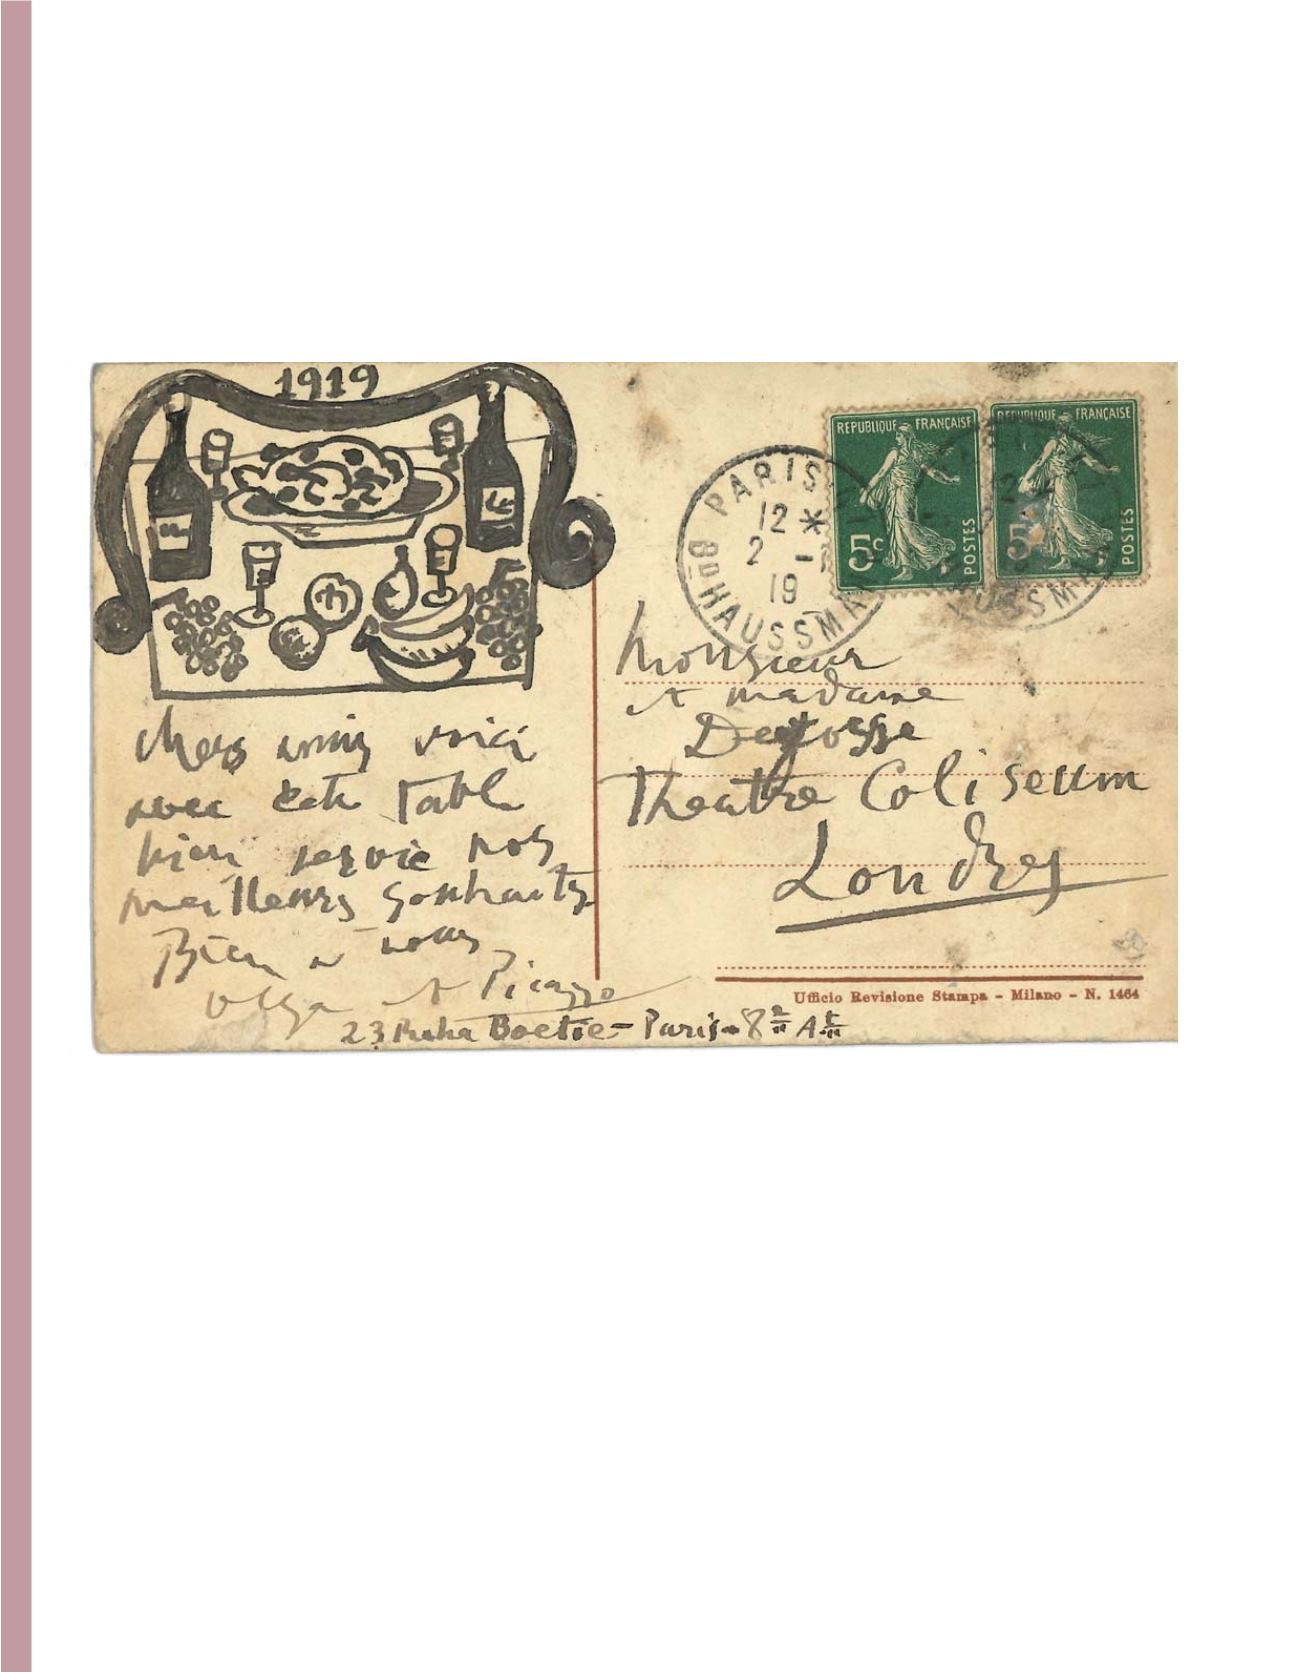 1919
chers amis voici
avec cete table
bien servie nos
meilleurs souhaits
Bien a vous
Olga et Picasso
23 Rue la Boetie - Paris - 8e Art
REPUBLIQUE FRANÇAISE
5c POSTES
REPUBLIQUE FRANÇAISE
5c POSTES
PARIS
12 *
2 -
19
Bd HAUSSMA
USSMA
Monsieur
et madame
Theatre Coliseum
Londres
Ufficio Revisione Stampa - Milano - N. 1464